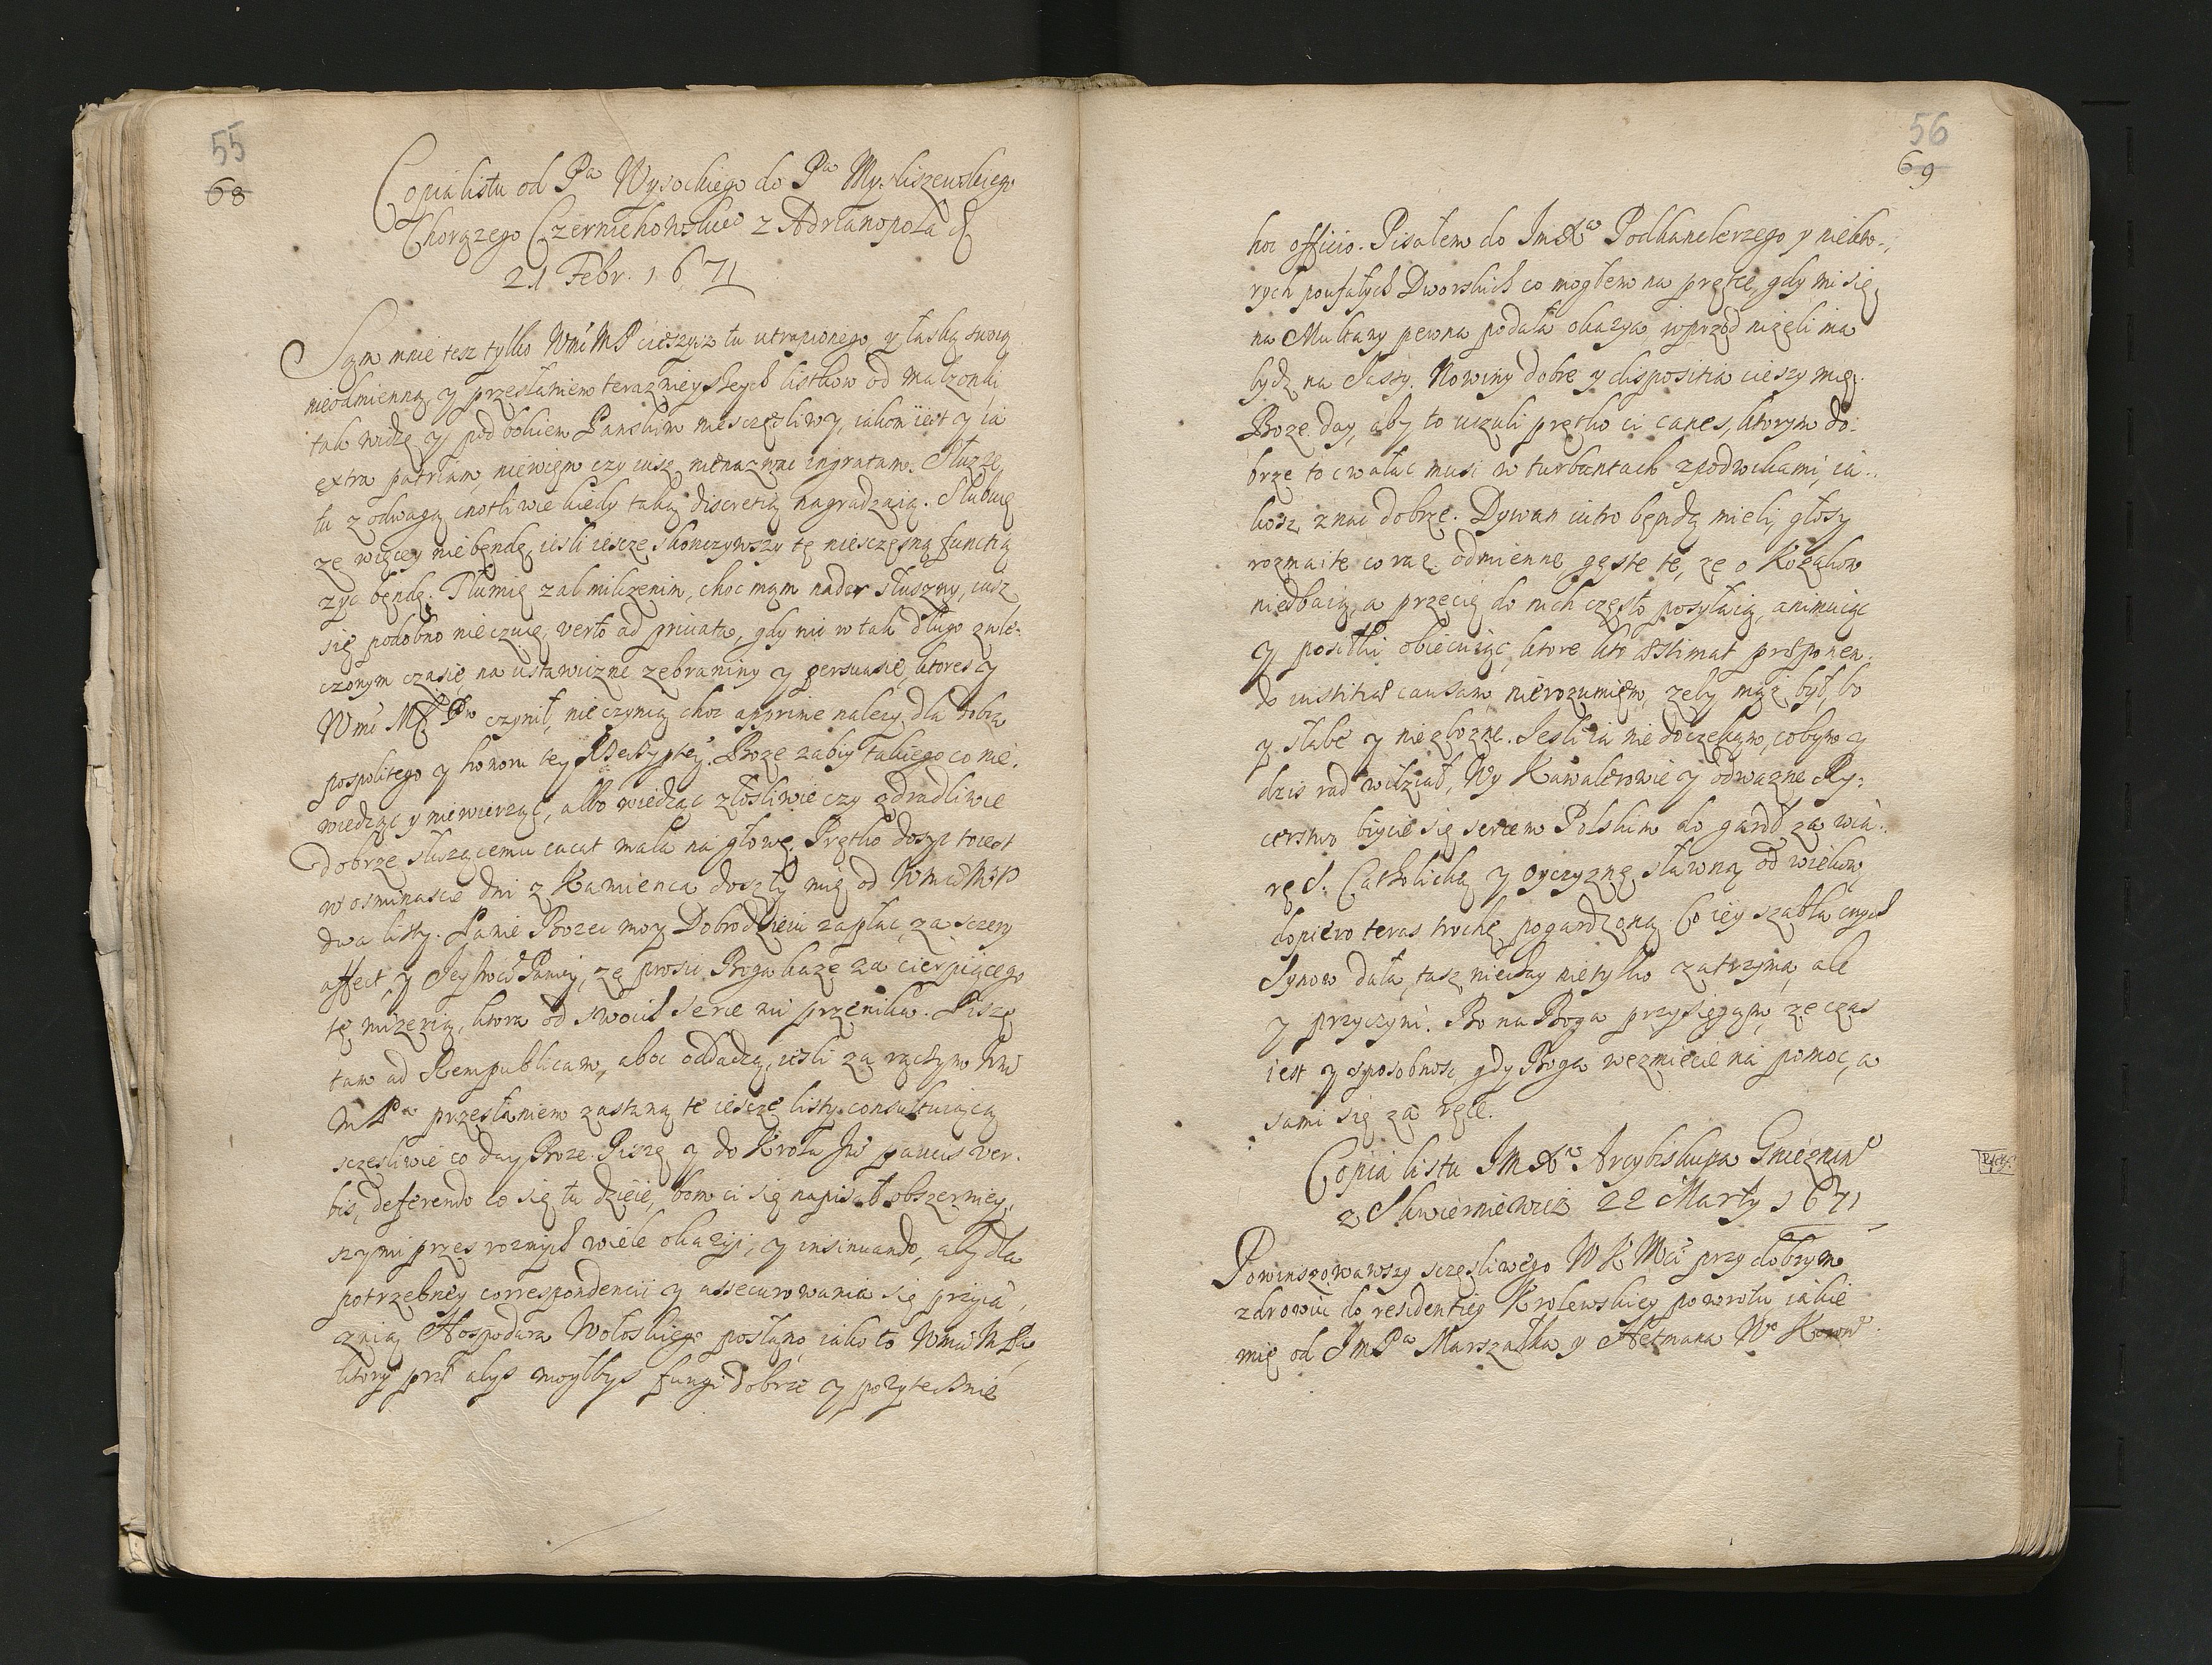 55
68
Copia listu od Pa Wysockiego do Pa Mysliszewskiego
Chorązego Czerniehowskiego z Adrianopola d
21 Febr. 1671
Sam mnie tesz tylko Wmć MP cieszysz tu utrapionego, y łaską swoią
nieodmienną, y przesłaniem teraznieyszych listkow od małzonki
tak widzę y pod bokiem Panskim niesczęsliwy, iakom iest y ia
extra patriam, niewięm czy iusz nienazwać ingratam. Słuzę
tu z odwagą cnotliwie kiedy taką discretią nagradzaią. Slubuię
ze więcey niebędę, iesli iescze skonczywszy tę niesczęsną functią
zyc będę. Tłumię zal milczenim, choc mąm nader słuszny, iusz
się podobno nieczuię, verto ad privata, gdy mi w tak długo zwle-
czonym czasie, na ustawiczne zebraniny y persuasie, ktores y
Wmć MX Pu czynił, nieczynią choc apprime nalezy dla dobra
pospolitego y honoru tey Rzeczyptey. Boze zabiy takiego co nie.
wiedząc y niewierząc, albo wiedząc złosliwie czy zdradliwie
dobrze słuzącemu cacat mala na głowę. Prętko dosyc to iest
w osminascie dni z Kamienca doszły mię od Wmci MP
dwa listy. Panie Boze moy Dobrodzieiu zapłac za sczery
affect y Jeymci Paniey, ze prosic Boga kaze za cierpiącego
tę mizerią, ktora od swoich serce mi przenika. Piszę
tam ad Rempublicam, aboc oddadzą, iesli za rączym Wm
M Pa przesłaniem zastaną te iescze listy consultuiącą
sczesliwie co day Boze. Piszę y do Krola Jmci paucis ver-
bis, deferendo co się tu dzieie, bom ci się napisał obszerniey-
szymi przes roznych wiele okazyi, y insinuando, aby dla
potrzebney correspondencii y assecurowania się przyia-
znią Hospodara Wołoskiego posłano iako to Wmci M Pa,
ktory abys mogłbys fungi dobrze y pozytecznie
56
69
hoc officio. Pisałem do Jm Xa Podkanclerzego y niekto-
rych poufałych Dworskich co mogłem na prętce, gdy mi się
na Multany pewna podała okazya, wprzod nizeli ma
bydz na Jassy. Nowiny dobre y dispositia cieszy mię.
Boze day, aby to uczuli prętko ci canes, ktorym do-
brze to cwałac musi w turbantach z podwikami, ia-
kosz znac dobrze. Dywan iutro będą mieli, głosy
rozmaite coraz odmienne, gęste te, ze o Kozakow
niedbaią, a przecię do nich często posyłaią, animuiąc
y posiłki obiecuiąc, ktore kto æstimat proponen-
do iustitiae causam, nierozumięm, zeby miąc był, bo
y słabe y niezbozne. Jesli ia niedoczekąm, cobym y
dzis rad widział, Wy Kawalerowie y odwazne Ry-
cerstwo biycie się sercem Polskim do gardł za wia-
rę S. Catholicką y Oyczyznę sławną od wiekow,
dopiero teras trochę pogardzoną. Co iey szabla cnych
Synow dała, tasz niechay nietylko zatrzyma, ale
y przyczyni. Bo na Boga przysięgąm, ze czas
iest y sposobnosc, gdy Boga wezmiecie na pomoc, a
sami się za ręce.
Copia listu Jm Xa Arcybiskupa Gnieznin
z Skwierniewicz 22 Marty 1671
Powinszowawszy sczęsliwego W K Mci przy dobrym
zdrowiu do residentiey Krolewskiey powrotu, iakie
mię od Jm Pa Marszałka y Hetmana We Koron